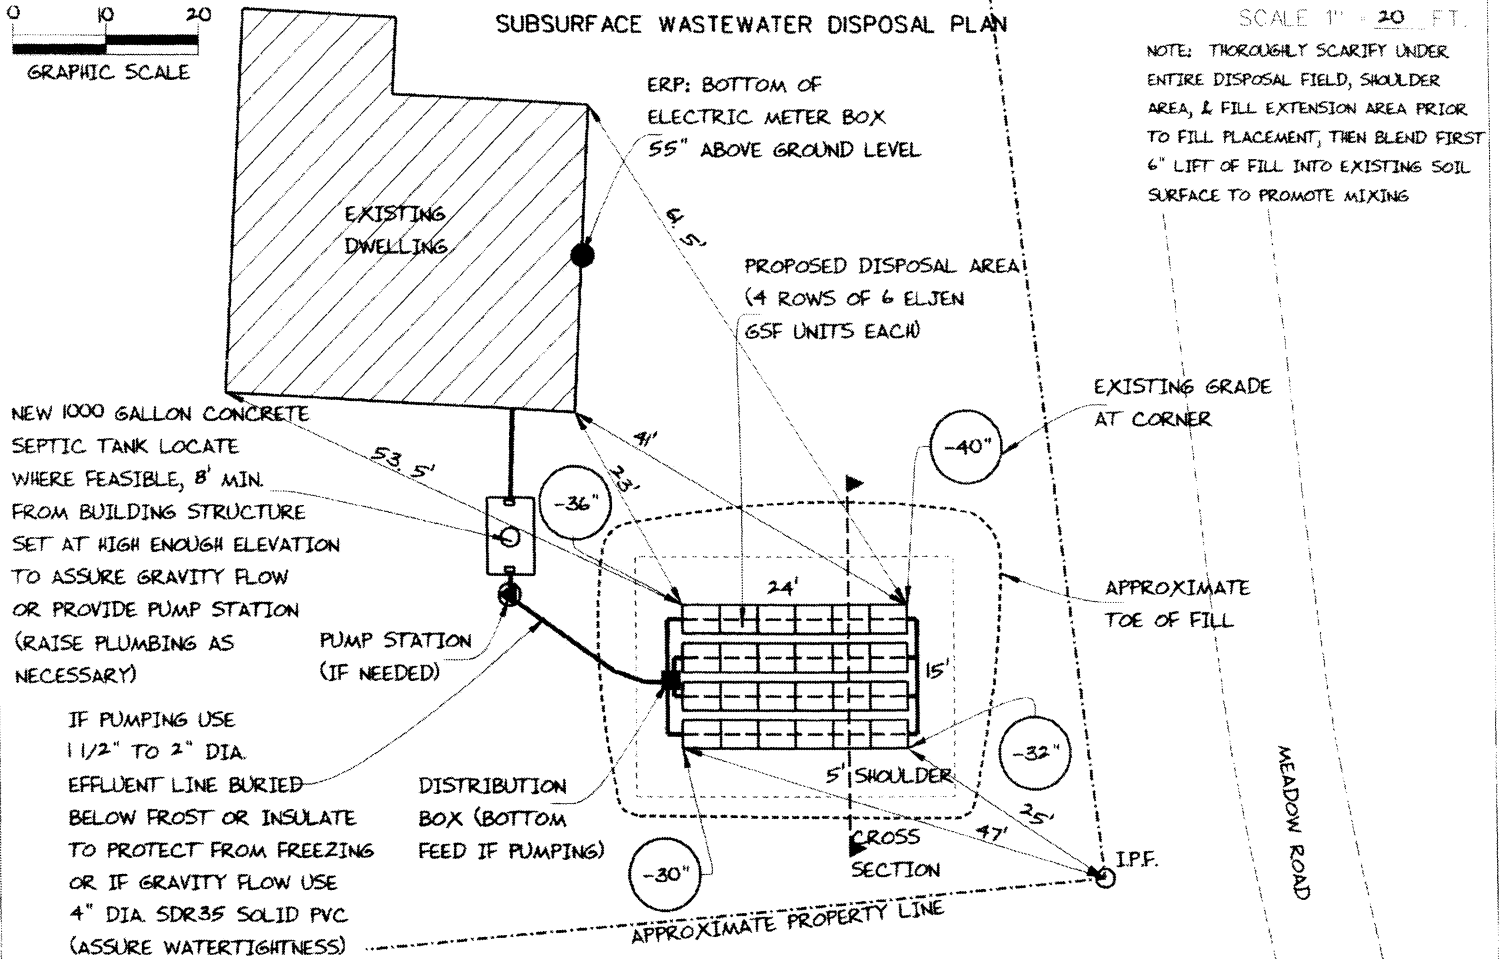 0 10 20
GRAPHIC SCALE
SUBSURFACE WASTEWATER DISPOSAL PLAN
SCALE 1" = 20 FT.
NOTE: THOROUGHLY SCARIFY UNDER
ENTIRE DISPOSAL FIELD, SHOULDER
AREA, & FILL EXTENSION AREA PRIOR
TO FILL PLACEMENT, THEN BLEND FIRST
6" LIFT OF FILL INTO EXISTING SOIL
SURFACE TO PROMOTE MIXING
ERP: BOTTOM OF
ELECTRIC METER BOX
55" ABOVE GROUND LEVEL
EXISTING
DWELLING
PROPOSED DISPOSAL AREA
(4 ROWS OF 6 ELJEN
GSF UNITS EACH)
EXISTING GRADE
AT CORNER
-40"
41'
23'
53.5'
-36"
NEW 1000 GALLON CONCRETE
SEPTIC TANK LOCATE
WHERE FEASIBLE, 8' MIN.
FROM BUILDING STRUCTURE
SET AT HIGH ENOUGH ELEVATION
TO ASSURE GRAVITY FLOW
OR PROVIDE PUMP STATION
(RAISE PLUMBING AS
NECESSARY)
PUMP STATION
(IF NEEDED)
24'
15'
APPROXIMATE
TOE OF FILL
IF PUMPING USE
1 1/2" TO 2" DIA.
EFFLUENT LINE BURIED
BELOW FROST OR INSULATE
TO PROTECT FROM FREEZING
OR IF GRAVITY FLOW USE
4" DIA. SDR35 SOLID PVC
(ASSURE WATERTIGHTNESS)
DISTRIBUTION
BOX (BOTTOM
FEED IF PUMPING)
5' SHOULDER
-32"
25'
47'
-30"
CROSS
SECTION
I.P.F.
APPROXIMATE PROPERTY LINE
MEADOW ROAD